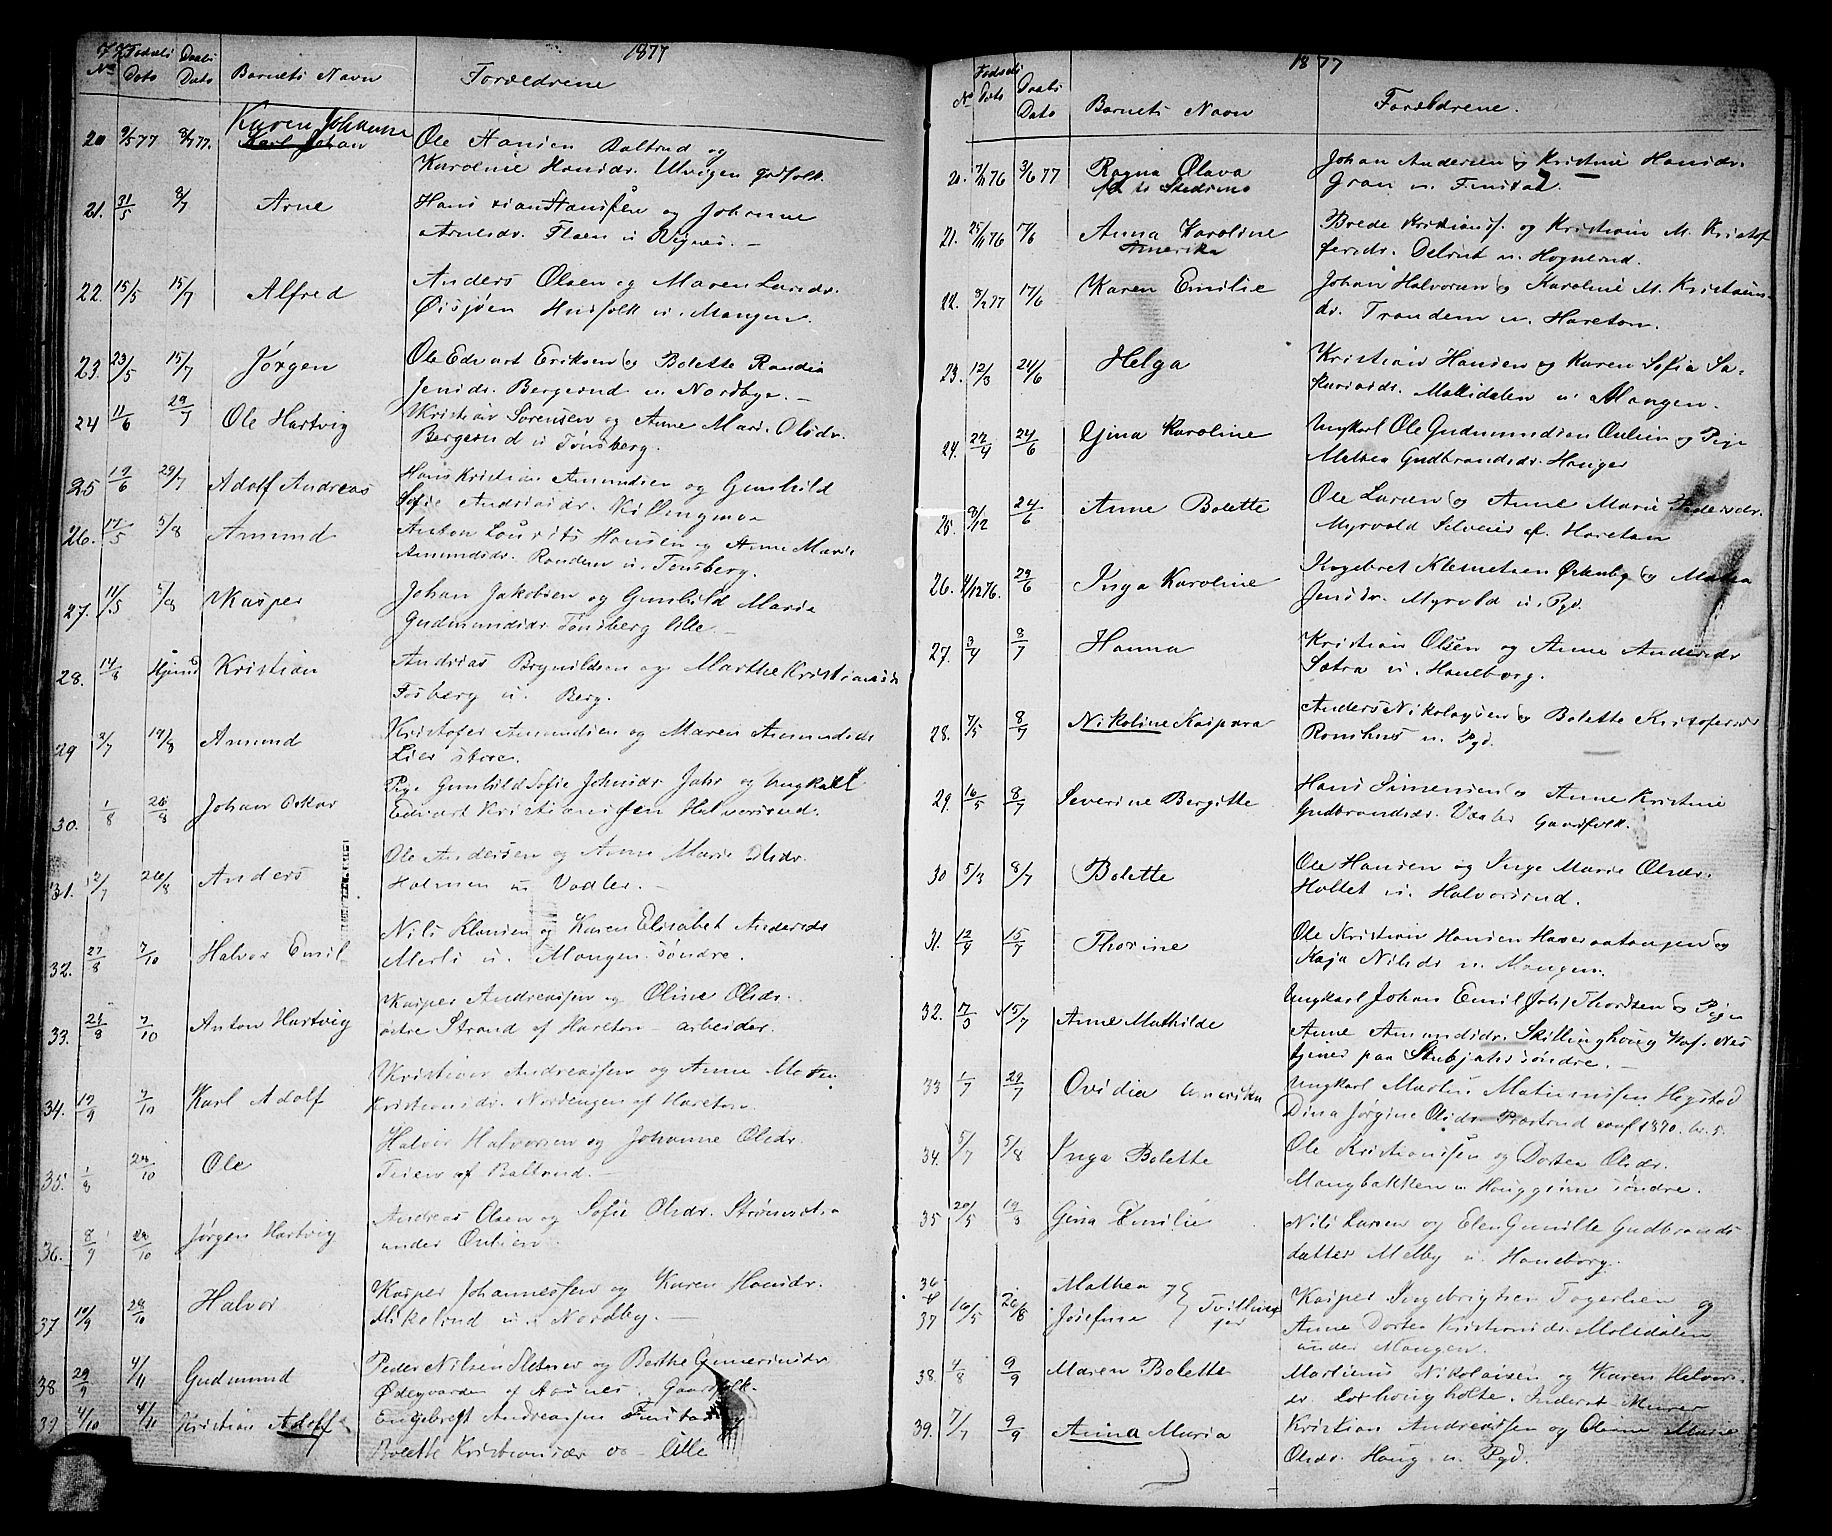 1877
No Fødsels Dato Daabs Dato Barnets Navn Forældrene
20 9/5 77 8/7 77. Karen Johanne Karl Johan Ole Hansen Baltrud og
Karoline Hansdr. Ulvigen gdfolk.
21. 31/5 8/7 Arne Hans og Johanne
Arnesdr. Flaen u. Dignes. —
22. 15/5 15/7 Alfred Anders Olsen og Maren Larsdr.
Øisjøen Husfolk u. Mangen.
23. 23/5 15/7 Jørgen Ole Edvart Eriksen og Bolette Randia
Jensdr. Bergerud u. Nordbye. —
24 11/6 29/7 Ole Hartvig Kristian Sørensen og Anne Mari Olsdr.
Bergerud u. Tønsberg.
25 17/6 29/7 Adolf Andreas Hans Kristian Amundsen og Gunhild
Sofie Andreasdr. Killingmoe
26. 17/5 5/8 Amund Anton Lourits Hansen og Anne Marie
Amundsdr. Randem u. Tønsberg.
27. 11/5 5/8 Kasper Johan Jakobsen og Gunhild Maria
Gudmundsdr. Tønsberg lille. —
28. 14/8 Hjemd Kristian Andreas Brynildsen og Marthe Kristiansdr
Fosberg u. Berg.
29 3/7 19/8 Amund Kristofer Amundsen og Maren Amundsdr
Lier store.
30. 1/8 26/8 Johan Oskar Pige Gunhild Sofie Johnsdr Jahr og Ungkarl
Edvart Kristiansen Halvorsrud.
31. 12/7 26/8 Anders Ole Andersen og Anne Marie Olsdr.
Holmen u. Vaaler. —
32. 27/8 7/10 Halvor Emil Nils Klausen og Karen Elisabet Andersdr
Merli u. Mangen søndre.
33. 28/8 7/10 Anton Hartvig Kasper Andreassen og Oline Olsdr.
østre Strand af Hareton — arbeider.
34. 19/9 7/10 Karl Adolf Kristian Andreassen og Anne Matea
Kristiansdr. Nordengen af Hareton.
35. 1/8 28/10 Ole Halvor Halvorsen og Johanne Olsdr.
Teien af Baltrud. —
36. 8/9 28/10 Jørgen Hartvig Andreas Olsen og Sofie Olsdr.
under Oulien.
37 10/9 28/10 Halvor Kasper Johannessen og Karen Hansdr.
Mikelrud u. Nordby. —
38 29/9 4/11 Gudmund Peder Nilsen Sletner og Berthe Gunerinsdr
Ødegaarden af Aarnes. Gaardfolk.
39 4/10 4/11 Kristian Adolf Engebret Andreassen Finstad og
Bolette lille
1877
No Fødsels Dato Daabs Dato Barnets Navn Forældrene.
20. 7/11 76 3/6 77 Ragna Olava Johan Andersen og Kristine Hansdr.
Gran u. Finstad.
21. 25/11 76 17/6 Anna Karoline Amerika Brede Kristians. og Kristine M. Kristof
fersdr. Delrut u. Hognerud.
22. 17/6 Karen Emilie Johan Halvorsen og Karoline M. Kristians-
dr. Trandem u. Hareton.
23. 12/3 24/6 Helga Kristian Hansen og Karen Sofia Sa-
kariasdr. Mallidalen u. Mangen.
24. 22/4 24/6 Gina Karoline Ungkarl Ole Gudmundsen Oulien og Pige
Mathea Gudbrandsdr. Hauger
25. 9/12 24/6 Anne Bolette Ole Larsen og Anne Marie Pedersdr.
Myrvold Selveier af Haretan
26. 4/12 76. 29/6 Inga Karoline Ingebret Klemetsen Ørkenby og Matea
Jensdr. Myrvold u. Pyd.
27. 3/4 8/7 Hanna Kristian Olsen og Anne Andersdr
Sætra u. Haneborg.
28. 7/5 8/7 Nikoline Kaspara Anders Nikolaysen og Bolette Kristofersdr
Romhus u. Pyd.
29. 16/5 8/7 Severine Bergitte Hans Simensen og Anne Kristine
Gudbrandsdr. Vaaler Gaardfolk.
30 5/3 8/7 Bolette Ole Hansen og Inge Marie Olsdr.
Holtet u. Halvorsrud.
31. 12/4 15/7 Thorine Ole Kristian Hansen Haveraatangen og
Kaja Nilsdr u. Mangen.
32. 7/3 15/7 Anne Mathilde Ungkarl Johan Emil Joh. Thordsen og Pige
Anne Amundsdr. Skillinghoug Haf. Nes
tjener paa Stubjahr søndre. —
33 1/7 29/7 Ovidia Amerika Ungkarl Martin Matiunissen Hogstad
Dina Jørgine Olsdr. Prastrud conf 1870. No. 5.
34. 5/7 5/8 Inga Bolette Ole Kristiansen og Dortea Olsdr.
Mangbakken u Houggeim søndre.
35 20/5 Gina Emilie Nils Larsen og Elen Gunille Gudbrands
datter Melby u. Haneborg.
36 & 37 16/5 26/8 Mathea og Josefine Tvillinger Kasper Ingebrigtsen Togerlien og
Anne Dortea Kristiansdr. Mollidalen
under Mangen.
38. 4/8 9/9 Maren Bolette Martinus Nikolaisen og Karen Halvors-
dr. Murer
39. 7/7 9/9 Anna Maria Kristian Andreassen og Oline Marie
Olsdr. Haug u. Pyd.